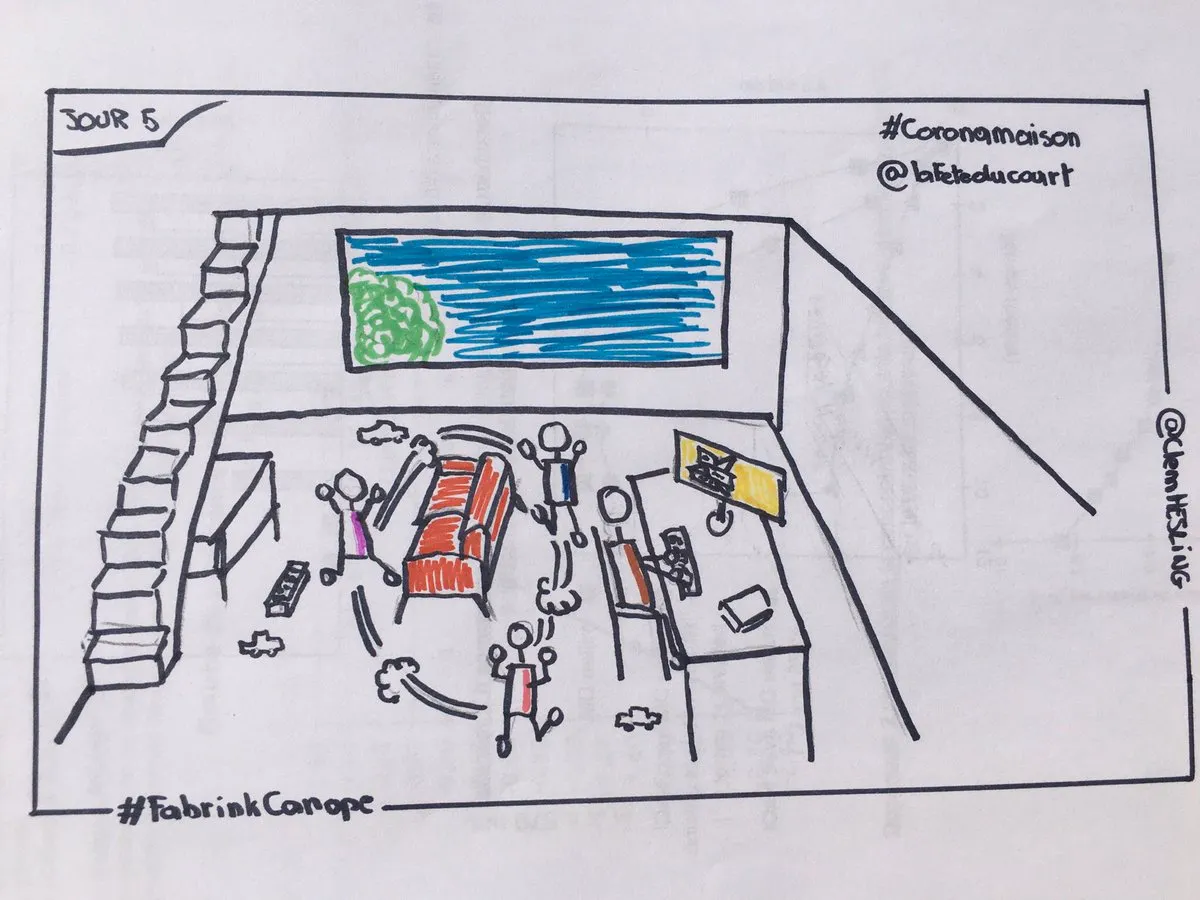 JOUR 5
#Coronamaison
@lafeteducourt
@ClemHESLING
#FabrinkCanope